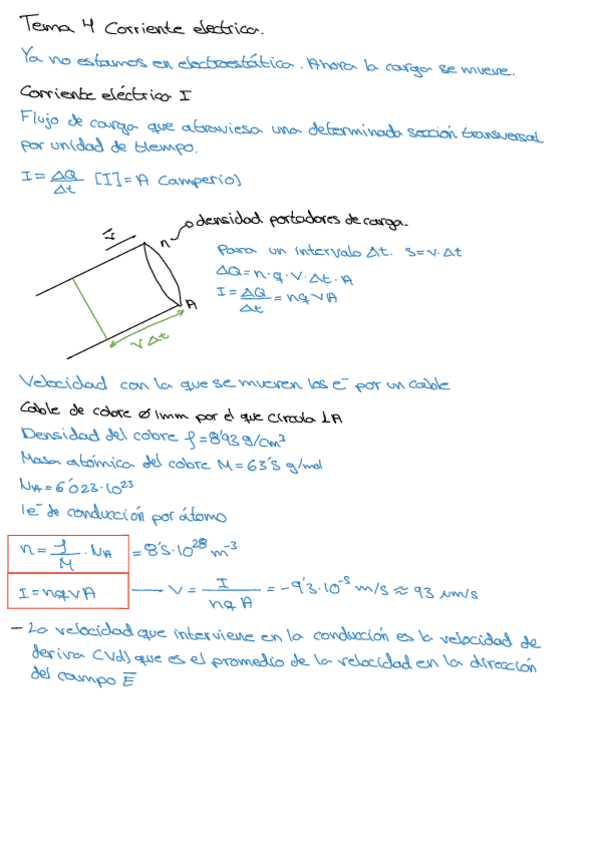 Tema 4 Corriente electrica.
Ya no estamos en electroestática. Ahora la carga se mueve.
Corriente eléctrica I
Flujo de carga que atraviesa una determinada sección transversal
por unidad de tiempo.
I = ΔQ/Δt [I] = A (amperio)
densidad portadores de carga.
I n
Para un intervalo Δt. s=v·Δt
ΔQ=n·q·v·Δt·A
I = ΔQ/Δt = nqvA
A
v Δt
Velocidad con la que se mueven los e⁻ por un cable
Cable de cobre ø 1mm por el que circula 1A
Densidad del cobre ρ=8'93 g/cm³
Masa atómica del cobre M=63'5 g/mol
NA=6'023·10²³
1e⁻ de conducción por átomo
n = ρ/M · NA = 8'5·10²⁸ m⁻³
I=nqvA — v = I/nqA = -9'3·10⁻⁵ m/s ≈ 93 μm/s
- La velocidad que interviene en la conducción es la velocidad de
deriva (vd) que es el promedio de la velocidad en la dirección
del campo E̅